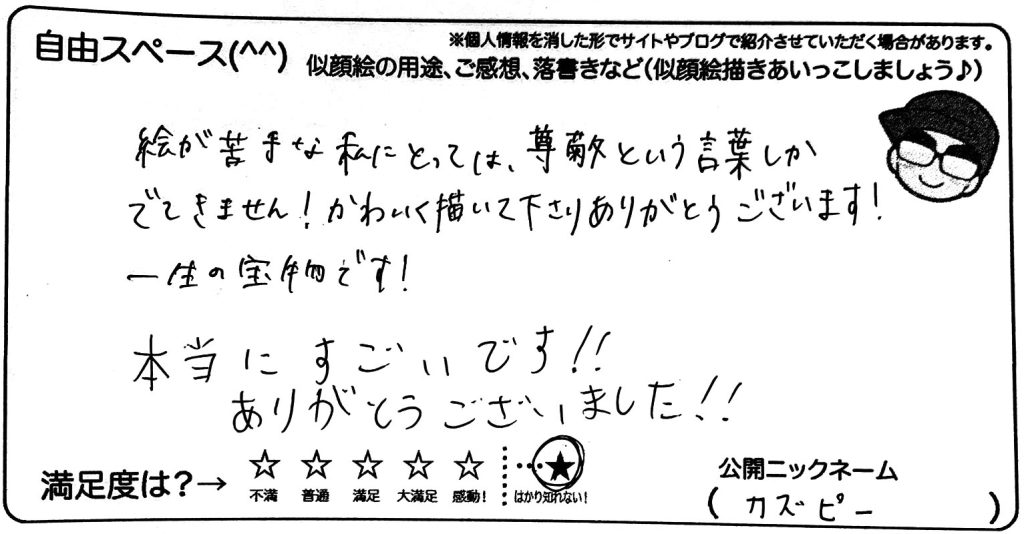 自由スペース(^^)
※個人情報を消した形でサイトやブログで紹介させていただく場合があります。
似顔絵の用途、ご感想、落書きなど(似顔絵描きあいっこしましょう♪)
絵が苦手な私にとっては、尊敬という言葉しか
でてきません!かわいく描いて下さりありがとうございます!
一生の宝物です!
本当にすごいです!!
ありがとうございました!!
満足度は?→ ☆ ☆ ☆ ☆ ☆ ★
不満 普通 満足 大満足 感動! はかり知れない!
公開ニックネーム
(カズピー)